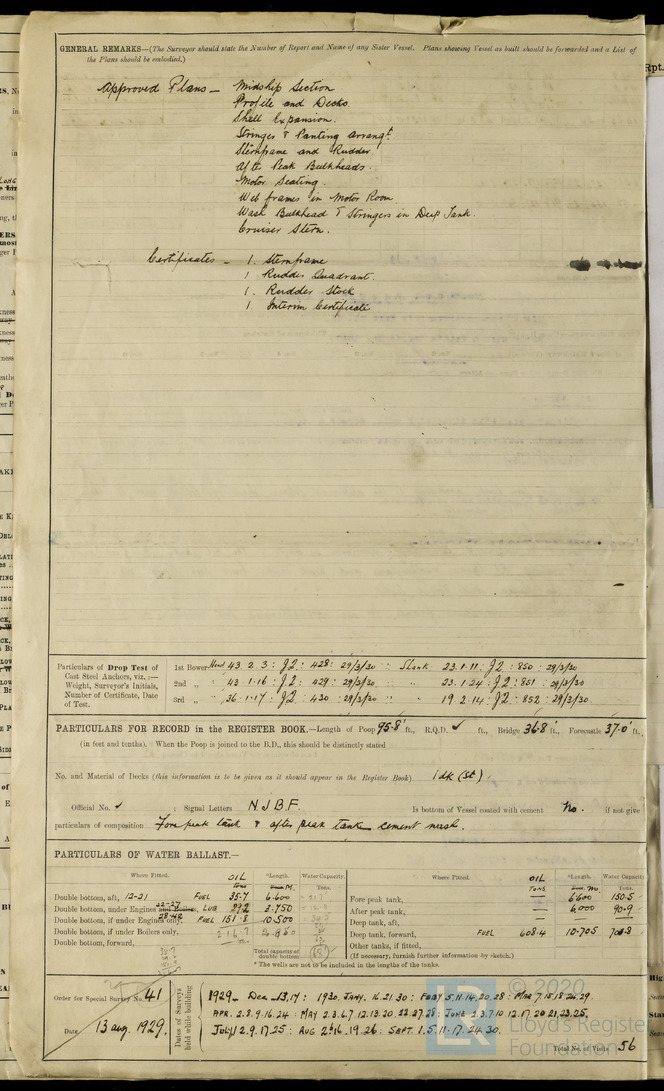 GENERAL REMARKS—(The Surveyor should state the Number of Report and Name of any Sister Vessel. Plans shewing Vessel as built should be forwarded and a List of
the Plans should be embodied.)
Approved Plans — Midship Section
Profile and Decks.
Shell Expansion.
Stringer & Panting arrangt.
Sternframe and Rudder
After Peak Bulkheads.
Motor Seating.
Web frames in Motor Room
Wash Bulkhead & Stringers in Deep Tank.
Cruiser Stern.
Certificates — 1. Sternframe
1 Rudder Quadrant.
1. Rudder Stock
1 Interim Certificate
Particulars of Drop Test of
Cast Steel Anchors, viz.:—
Weight, Surveyor's Initials,
Number of Certificate, Date
of Test.
1st Bower Head 43.2.3: J2: 428: 29/3/30 Shank 23.1.11: J2: 850: 29/3/30
2nd „ 43.1.16: J2: 429: 29/3/30 23.1.24: J2: 851: 29/3/30
3rd „ 36.1.17: J2: 430: 29/3/30 19.2.14: J2: 852: 29/3/30.
PARTICULARS FOR RECORD in the REGISTER BOOK.—Length of Poop 95.8 ft., R.Q.D. ✓ ft., Bridge 36.8 ft., Forecastle 37.0 ft.,
(in feet and tenths). When the Poop is joined to the B.D., this should be distinctly stated
No. and Material of Decks (this information is to be given as it should appear in the Register Book) 1 dk (St).
Official No. ✓ ; Signal Letters N.J.B.F. Is bottom of Vessel coated with cement No. if not give
particulars of composition Fore peak tank & after peak tank cement wash.
PARTICULARS OF WATER BALLAST.—
Where Fitted. OIL Tons *Length. M. Water Capacity. Tons.
Double bottom, aft, 12-21 FUEL 35.7 6.600
Double bottom, under Engines and Boilers, 22-27 LUB 29.2 3.750
Double bottom, if under Engines only, 28-42 FUEL 151.8 10.500
Double bottom, if under Boilers only,
Double bottom, forward,
Total capacity of double bottom
Where Fitted. OIL TONS *Length. M. Water Capacity Tons.
Fore peak tank, — 6.600 150.5
After peak tank, — 6.000 90.9
Deep tank, aft, — —
Deep tank, forward, FUEL 608.4 10.705
Other tanks, if fitted,
(If necessary, furnish further information by sketch.)
* The wells are not to be included in the lengths of the tanks.
Order for Special Survey No. 41
Date 13 Aug. 1929.
Dates of Surveys held while building
1929— Dec 13,17: 1930. JANY. 16.21.30: FEBY 5.11.14.20.28: MAR 7.15.18.26.29.
APR. 2.8.9.16.24: MAY 2.3.6.7.12.13.20.22.27.28: JUNE 2.3.7.10.12.17.20.21.23.25.
JULY 2.9.17.25: AUG 2.16.19.26: SEPT. 1.5.11.17.24.30.
Total No. of Visits 56
© 2020
Lloyd's Register
Foundation
LR
Rpt.